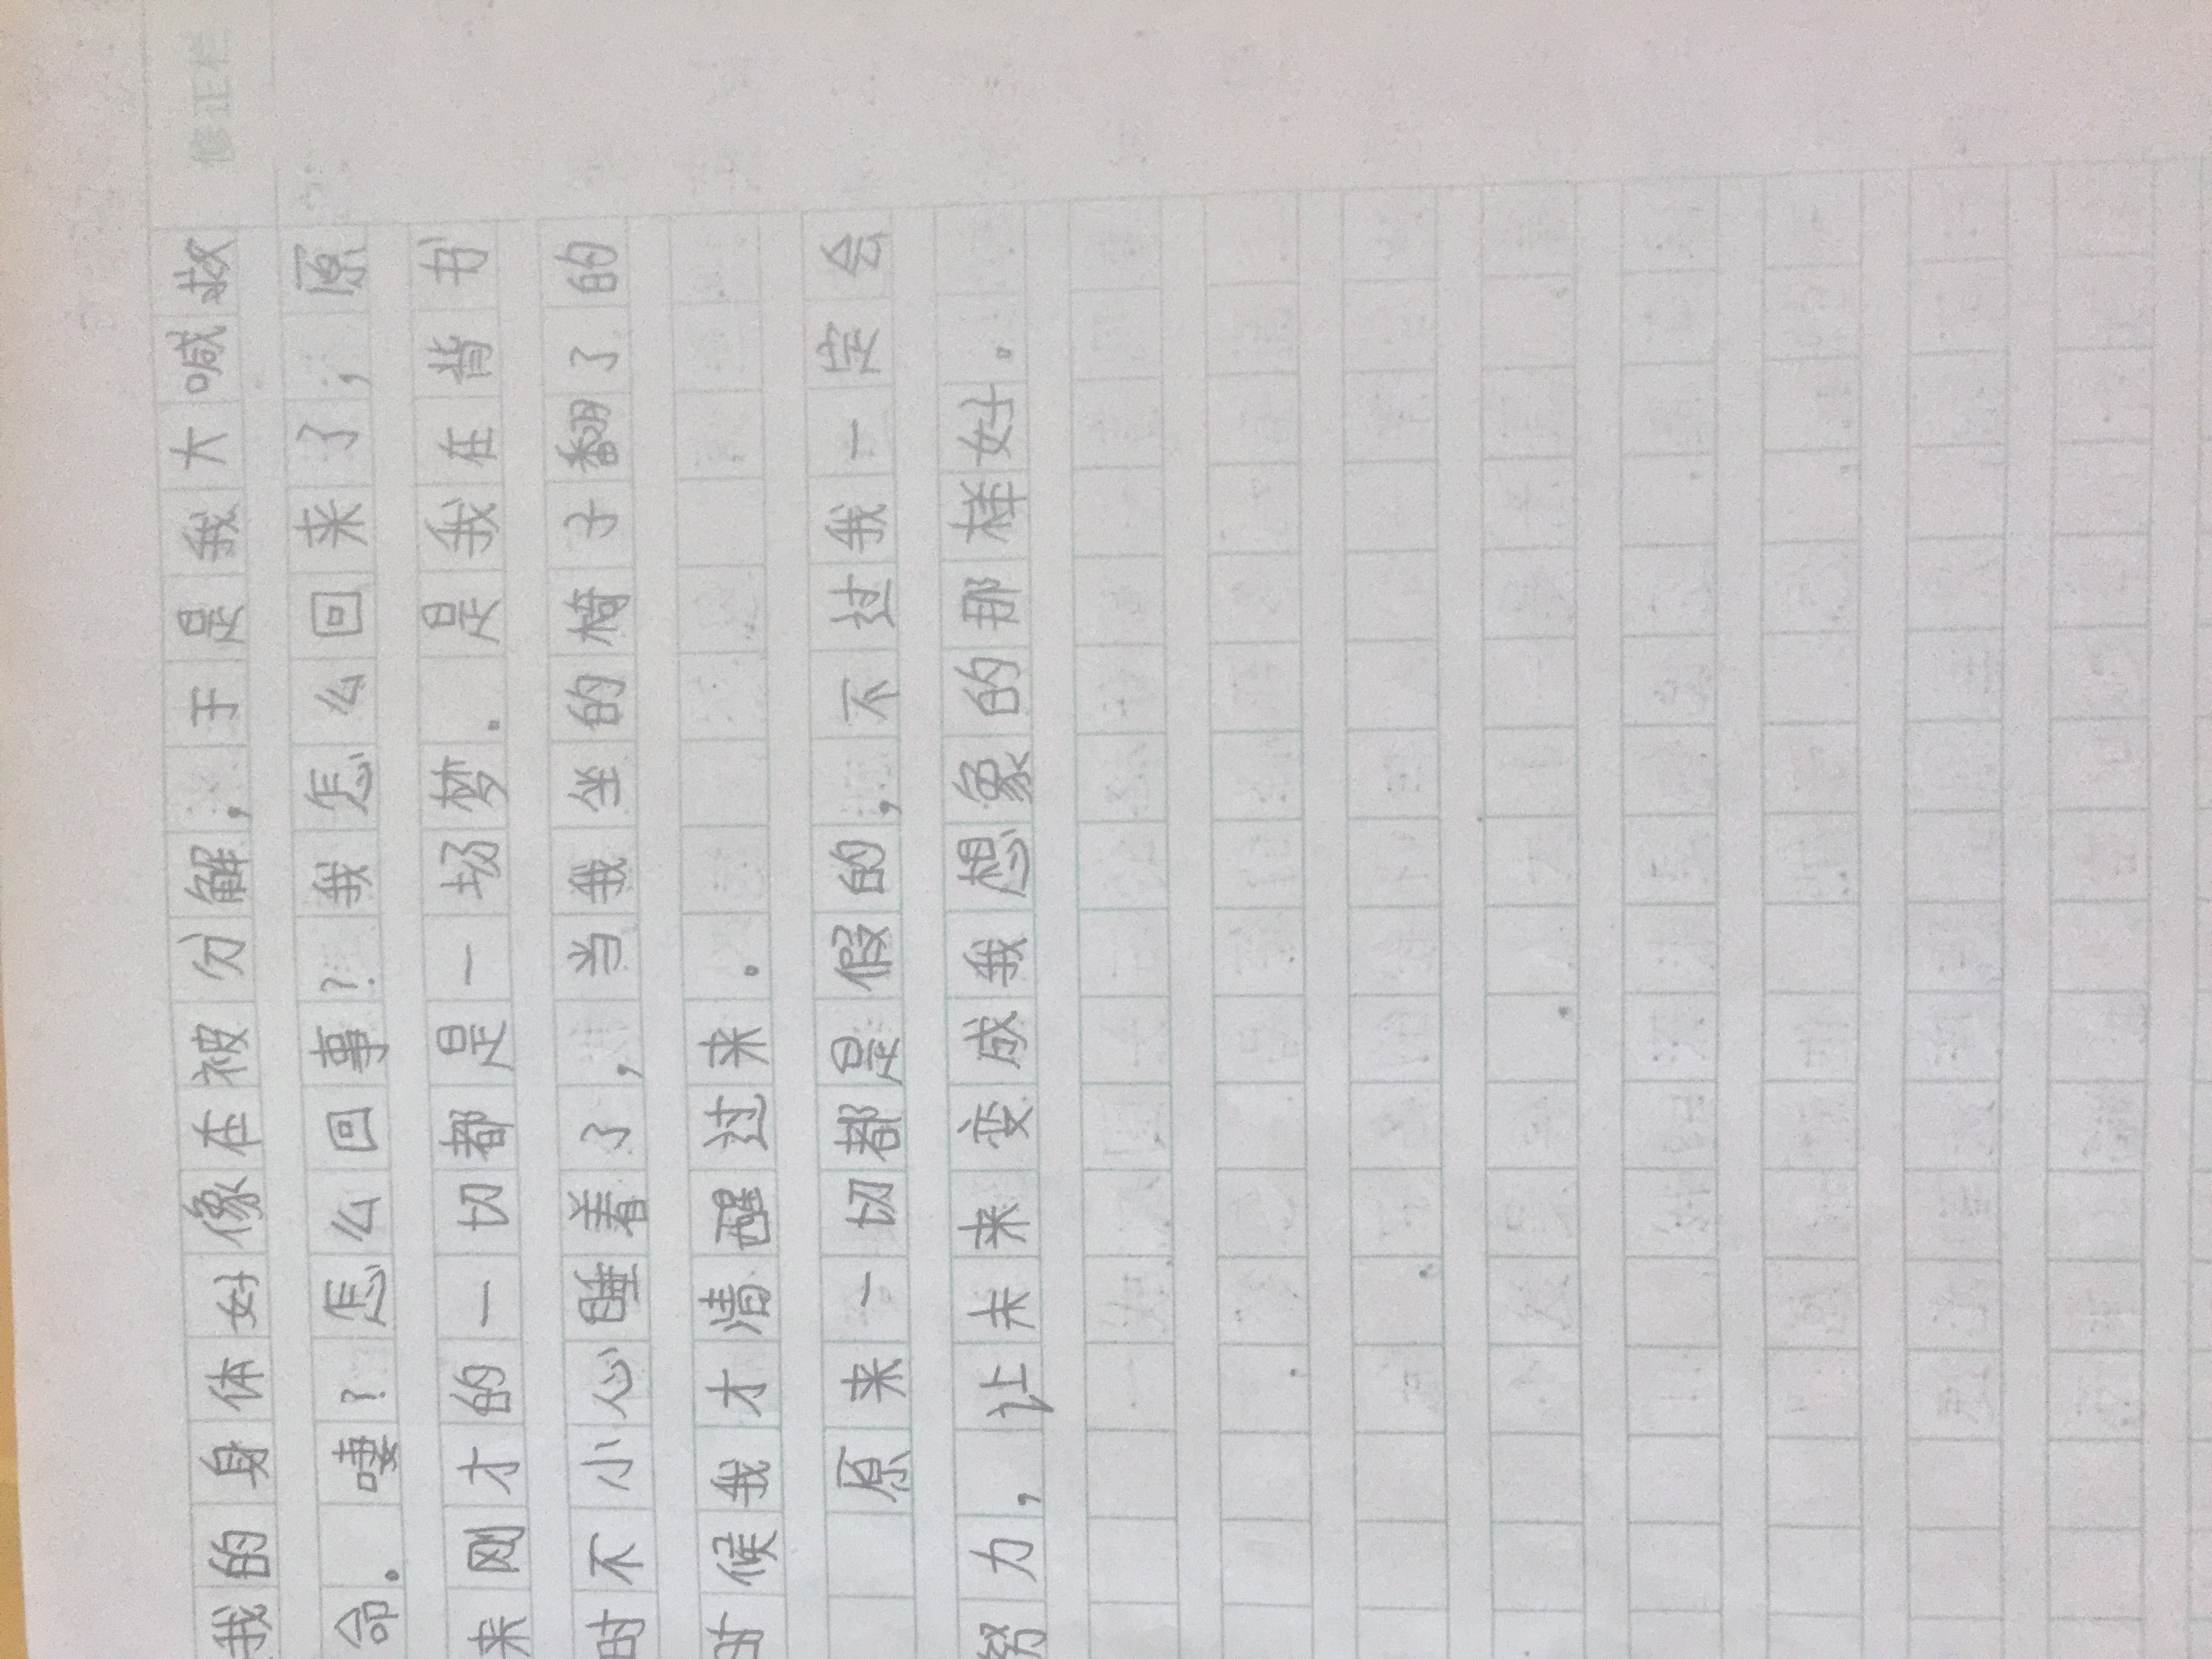 修正栏
我的身体好像在被分解，于是我大喊救
命。喽？怎么回事？我怎么回来了，原
来刚才的一切都是一场梦。是我在背书
时不小心睡着了，当我坐的椅子翻了的
时候我才清醒过来。
原来一切都是假的，不过我一定会
努力，让未来变成我想象的那样好。